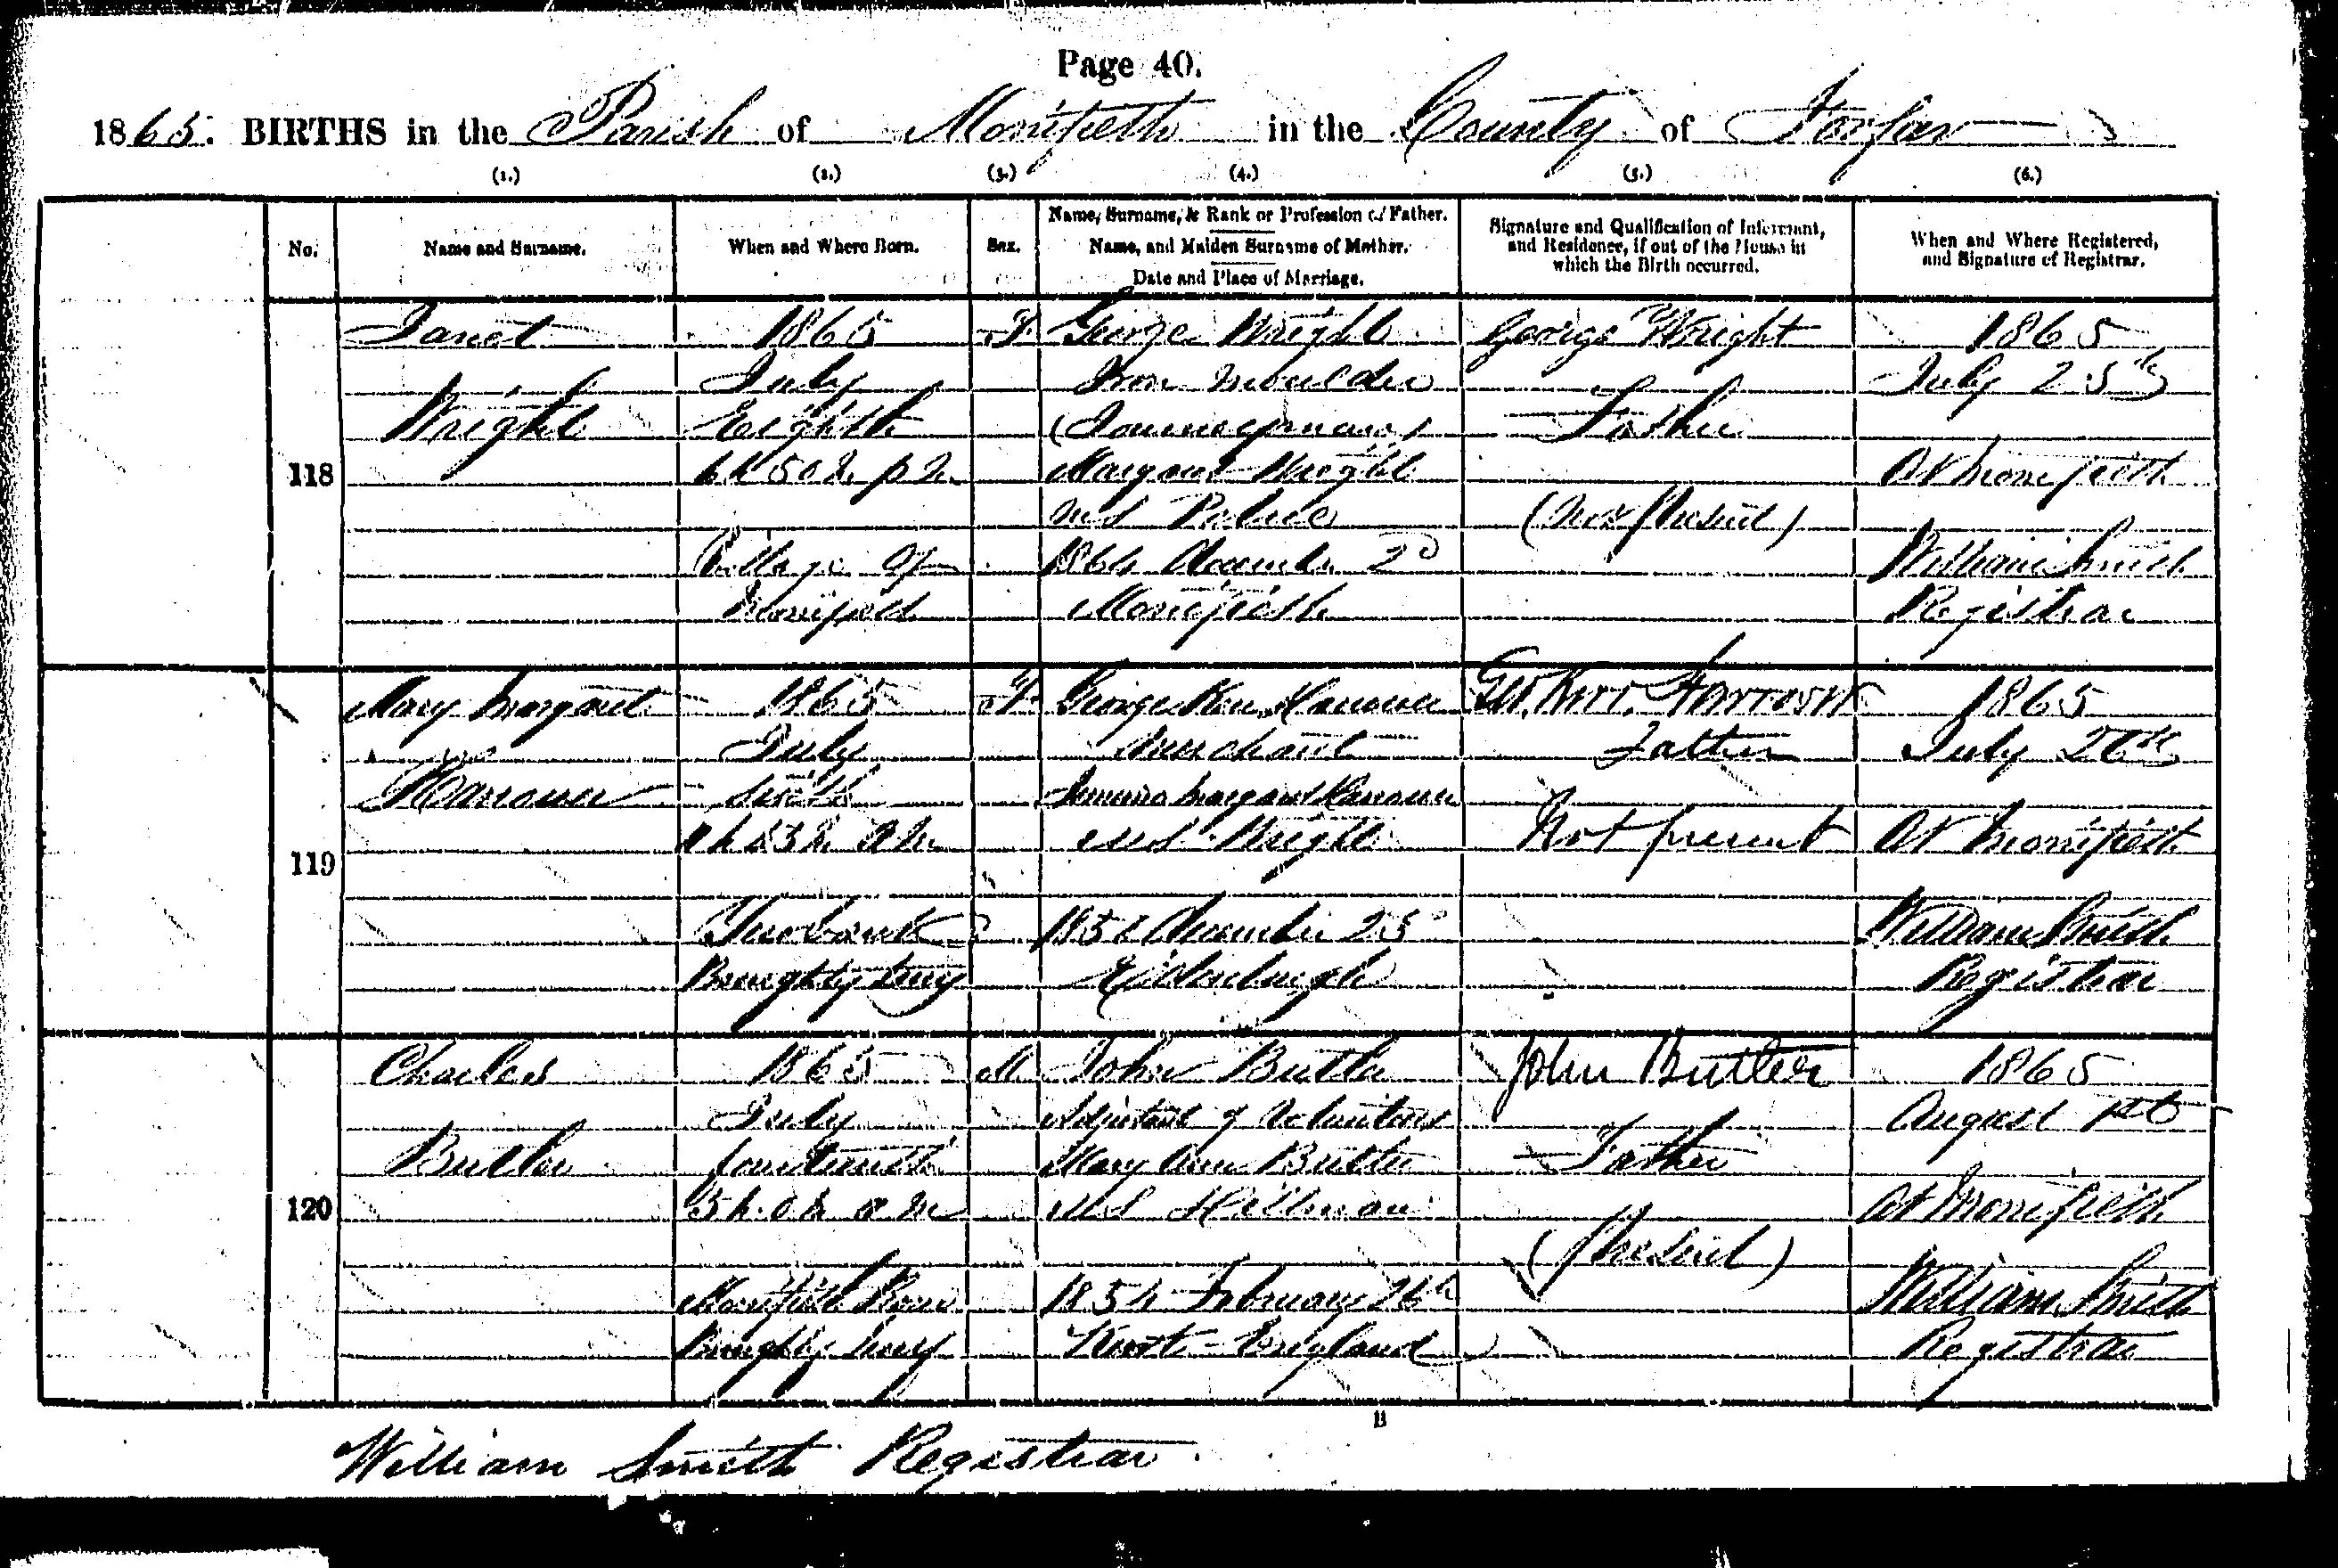 Page 40.
1865. BIRTHS in the Parish of Monifieth in the County of Forfar
(1.) (2.) (3.) (4.) (5.) (6.)
No.
Name and Surname.
When and Where Born.
Sex.
Name, Surname, & Rank or Profession of Father.
Name, and Maiden Surname of Mother.
Date and Place of Marriage.
Signature and Qualification of Informant,
and Residence, if out of the House in
which the Birth occurred.
When and Where Registered,
and Signature of Registrar.
118
Janet
Wright
1865
July
Eighth
6h 50m p m
Village of
Monifieth
F
George Wright
Iron Moulder
(Journeyman)
Margaret Wright
M S
1864 December 2d
Monifieth
George Wright
Father
(Not Present)
1865
July 25th
At Monifieth
William Smith
Registrar
119
Mary Margaret
1865
July
a m
Broughty Ferry
F
George Kerr
Merchant
Margaret
M S Wright
December 23
Edinburgh
Geo. Kerr
Father
Not present
1865
July
At Monifieth
William Smith
Registrar
120
Charles
Butler
1865
July
fourteenth
5h. 0m a m
Monifieth Road
Broughty Ferry
M
John Butler
Adjutant of Volunteers
Mary Ann Butler
M S Hillman
1854 February
Kent England
John Butler
Father
(Present)
1865
August 1st
At Monifieth
William Smith
Registrar
William Smith Registrar.